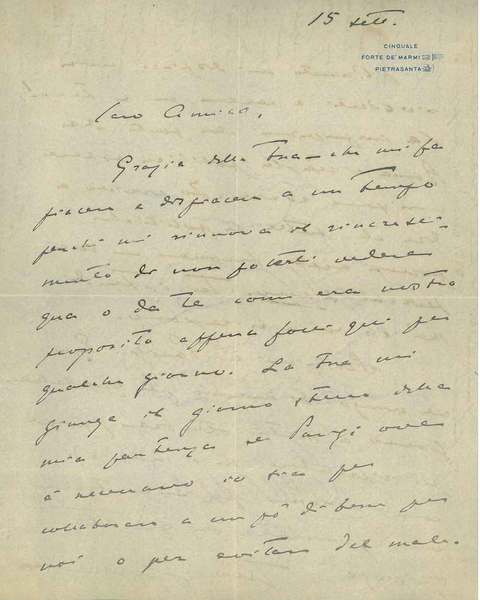 15 sett.
CINQUALE
FORTE DE' MARMI
PIETRASANTA
Caro Amico,
Grazie della tua — che mi fa
piacere e dispiacere a un tempo
perchè mi rinnova il rincresci-
mento di non poterti vedere
qua o da te come era nostro
proposito appena fossi qui per
qualche giorno. La tua mi
giunge il giorno stesso della
mia partenza per Parigi ove
è necessario io sia per
collaborare a un pò di bene per
noi o per evitare del male.